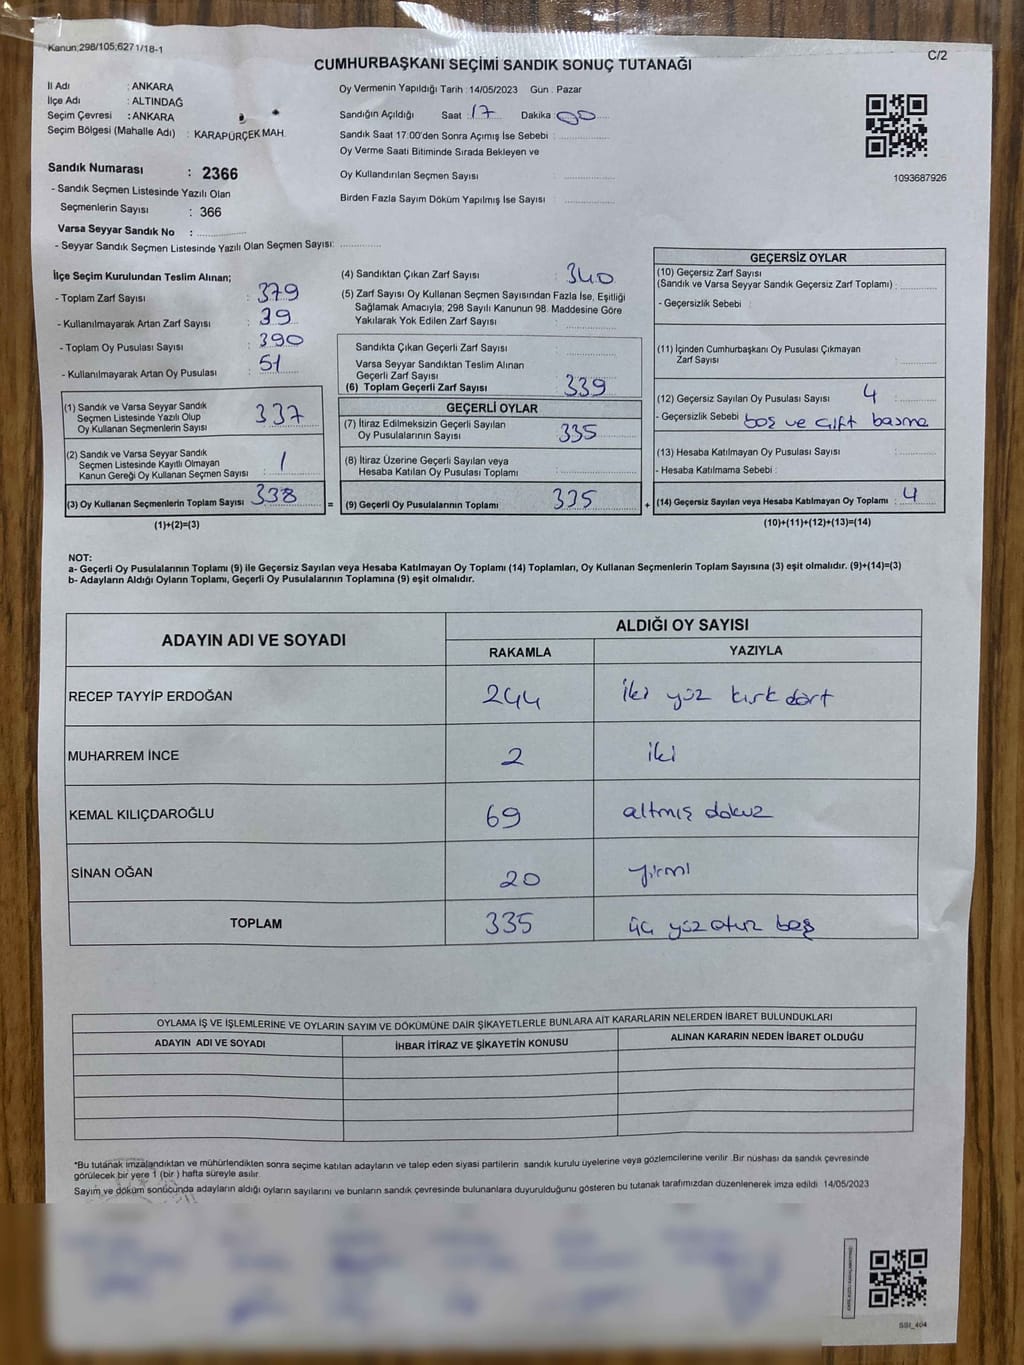 Kanun;298/105;6271/18-1
C/2
CUMHURBAŞKANI SEÇİMİ SANDIK SONUÇ TUTANAĞI
İl Adı : ANKARA
İlçe Adı : ALTINDAĞ
Seçim Çevresi : ANKARA
Seçim Bölgesi (Mahalle Adı) : KARAPÜRÇEK MAH.
Oy Vermenin Yapıldığı Tarih : 14/05/2023 Gün : Pazar
Sandığın Açıldığı Saat : 17 Dakika : 00
Sandık Saat 17.00'den Sonra Açımış İse Sebebi :
Oy Verme Saati Bitiminde Sırada Bekleyen ve
Oy Kullandırılan Seçmen Sayısı :
Birden Fazla Sayım Döküm Yapılmış İse Sayısı :
1093687926
Sandık Numarası : 2366
- Sandık Seçmen Listesinde Yazılı Olan
Seçmenlerin Sayısı : 366
Varsa Seyyar Sandık No :
- Seyyar Sandık Seçmen Listesinde Yazılı Olan Seçmen Sayısı:
İlçe Seçim Kurulundan Teslim Alınan;
- Toplam Zarf Sayısı : 379
- Kullanılmayarak Artan Zarf Sayısı : 39
- Toplam Oy Pusulası Sayısı : 390
- Kullanılmayarak Artan Oy Pusulası : 51
(1) Sandık ve Varsa Seyyar Sandık
Seçmen Listesinde Yazılı Olup
Oy Kullanan Seçmenlerin Sayısı : 337
(2) Sandık ve Varsa Seyyar Sandık
Seçmen Listesinde Kayıtlı Olmayan
Kanun Gereği Oy Kullanan Seçmen Sayısı : 1
(3) Oy Kullanan Seçmenlerin Toplam Sayısı : 338
(1)+(2)=(3)
=
(4) Sandıktan Çıkan Zarf Sayısı : 340
(5) Zarf Sayısı Oy Kullanan Seçmen Sayısından Fazla İse, Eşitliği
Sağlamak Amacıyla; 298 Sayılı Kanunun 98. Maddesine Göre
Yakılarak Yok Edilen Zarf Sayısı :
Sandıkta Çıkan Geçerli Zarf Sayısı :
Varsa Seyyar Sandıktan Teslim Alınan
Geçerli Zarf Sayısı :
(6) Toplam Geçerli Zarf Sayısı : 339
GEÇERLİ OYLAR
(7) İtiraz Edilmeksizin Geçerli Sayılan
Oy Pusulalarının Sayısı : 335
(8) İtiraz Üzerine Geçerli Sayılan veya
Hesaba Katılan Oy Pusulası Toplamı :
(9) Geçerli Oy Pusulalarının Toplamı : 335
+
GEÇERSİZ OYLAR
(10) Geçersiz Zarf Sayısı
(Sandık ve Varsa Seyyar Sandık Geçersiz Zarf Toplamı) :
- Geçersizlik Sebebi :
(11) İçinden Cumhurbaşkanı Oy Pusulası Çıkmayan
Zarf Sayısı :
(12) Geçersiz Sayılan Oy Pusulası Sayısı : 4
- Geçersizlik Sebebi : boş ve çift basma
(13) Hesaba Katılmayan Oy Pusulası Sayısı :
- Hesaba Katılmama Sebebi :
(14) Geçersiz Sayılan veya Hesaba Katılmayan Oy Toplamı : 4
(10)+(11)+(12)+(13)=(14)
NOT:
a- Geçerli Oy Pusulalarının Toplamı (9) ile Geçersiz Sayılan veya Hesaba Katılmayan Oy Toplamı (14) Toplamları, Oy Kullanan Seçmenlerin Toplam Sayısına (3) eşit olmalıdır. (9)+(14)=(3)
b- Adayların Aldığı Oyların Toplamı, Geçerli Oy Pusulalarının Toplamına (9) eşit olmalıdır.
ADAYIN ADI VE SOYADI
ALDIĞI OY SAYISI
RAKAMLA YAZIYLA
RECEP TAYYİP ERDOĞAN 244 iki yüz kırk dört
MUHARREM İNCE 2 iki
KEMAL KILIÇDAROĞLU 69 altmış dokuz
SİNAN OĞAN 20 yirmi
TOPLAM 335 üç yüz otuz beş
OYLAMA İŞ VE İŞLEMLERİNE VE OYLARIN SAYIM VE DÖKÜMÜNE DAİR ŞİKAYETLERLE BUNLARA AİT KARARLARIN NELERDEN İBARET BULUNDUKLARI
ADAYIN ADI VE SOYADI İHBAR İTİRAZ VE ŞİKAYETİN KONUSU ALINAN KARARIN NEDEN İBARET OLDUĞU
*Bu tutanak imzalandıktan ve mühürlendikten sonra seçime katılan adayların ve talep eden siyasi partilerin sandık kurulu üyelerine veya gözlemcilerine verilir .Bir nüshası da sandık çevresinde
görülecek bir yere 1 (bir ) hafta süreyle asılır.
Sayım ve döküm sonucunda adayların aldığı oyların sayılarını ve bunların sandık çevresinde bulunanlara duyurulduğunu gösteren bu tutanak tarafımızdan düzenlenerek imza edildi 14/05/2023
SSI_404